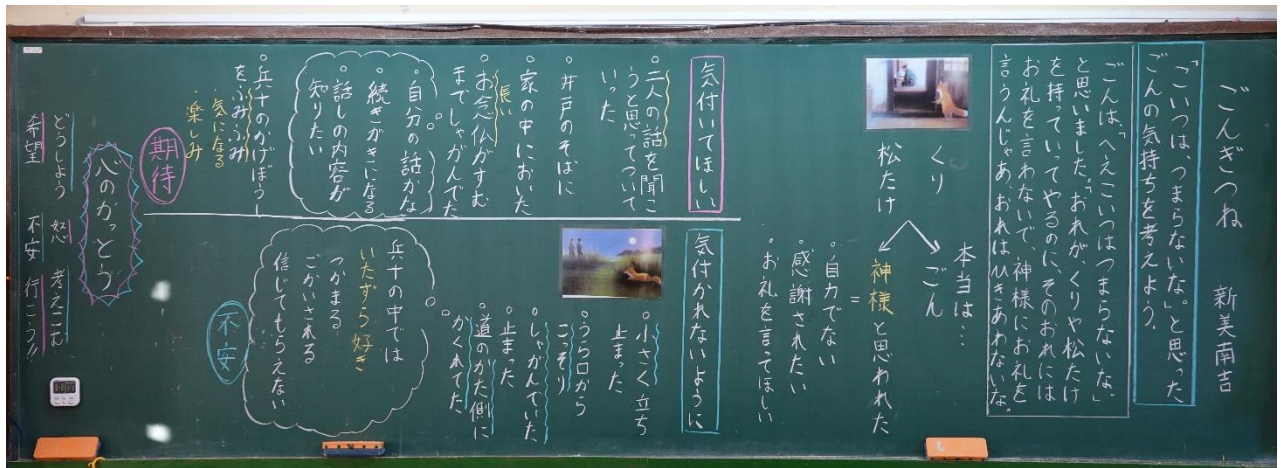 ごんぎつね　新美南吉
「こいつは、つまらないな。」と思った
ごんの気持ちを考えよう。
ごんは、「へえこいつはつまらないな。」
と思いました。「おれが、くりや松たけ
を持っていってやるのに、そのおれには
お礼を言わないで、神様にお礼を
言うんじゃあ、おれはひきあわないな。
くり
松たけ
本当は…
ごん
神様と思われた
=
・自力でない
・感謝されたい
・お礼を言ってほしい
気付いてほしい
・二人の話を聞こ
うと思ってついて
いった
・井戸のそばに
・家の中においた
長い
・お念仏がすむ
までしゃがんでた
・自分の話かな
・続きがきになる
・話しの内容が
知りたい
・兵十のかげぼうし
をふみふみ
・気になる
・楽しみ
期待
気付かれないように
・小さく立ち
止まった
・うら口から
こっそり
・しゃがんでいた
・止まった
・道のかた側に
かくれてた
兵十の中では
いたずら好き
つかまる
ごかいされる
信じてもらえない
不安
心のかっとう
どうしよう　怒　考えこむ
希望　不安　行こう!!